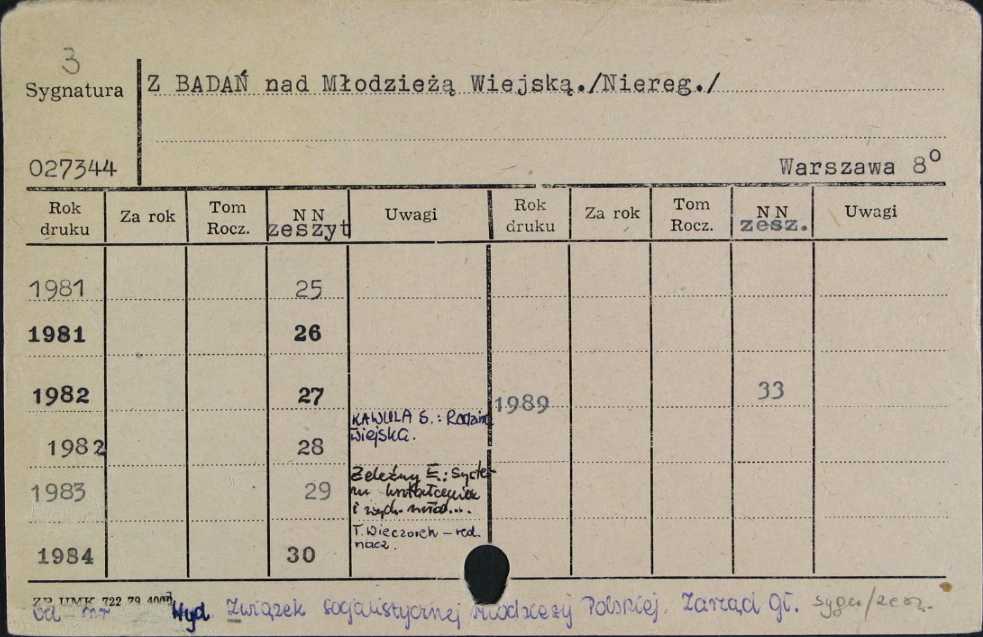 3
Sygnatura
Z BADAŃ nad Młodzieżą Wiejską./Niereg./
027344
Warszawa 8⁰
Rok druku Za rok Tom Rocz. NN zeszyt Uwagi Rok druku Za rok Tom Rocz. NN zesz. Uwagi
1981 25
1981 26
1982 27 1989 33
KAWULA S.: Rodzina
wiejska.
1982 28
Żeleźny E.: Syste-
1983 29
i wych. mład...
T. Wieczorek – red.
nacz.
1984 30
ZP UMK 722 79
Wyd. Związek Socjalistycznej Młodzieży Polskiej. Zarząd Gł. sygn/zesz.